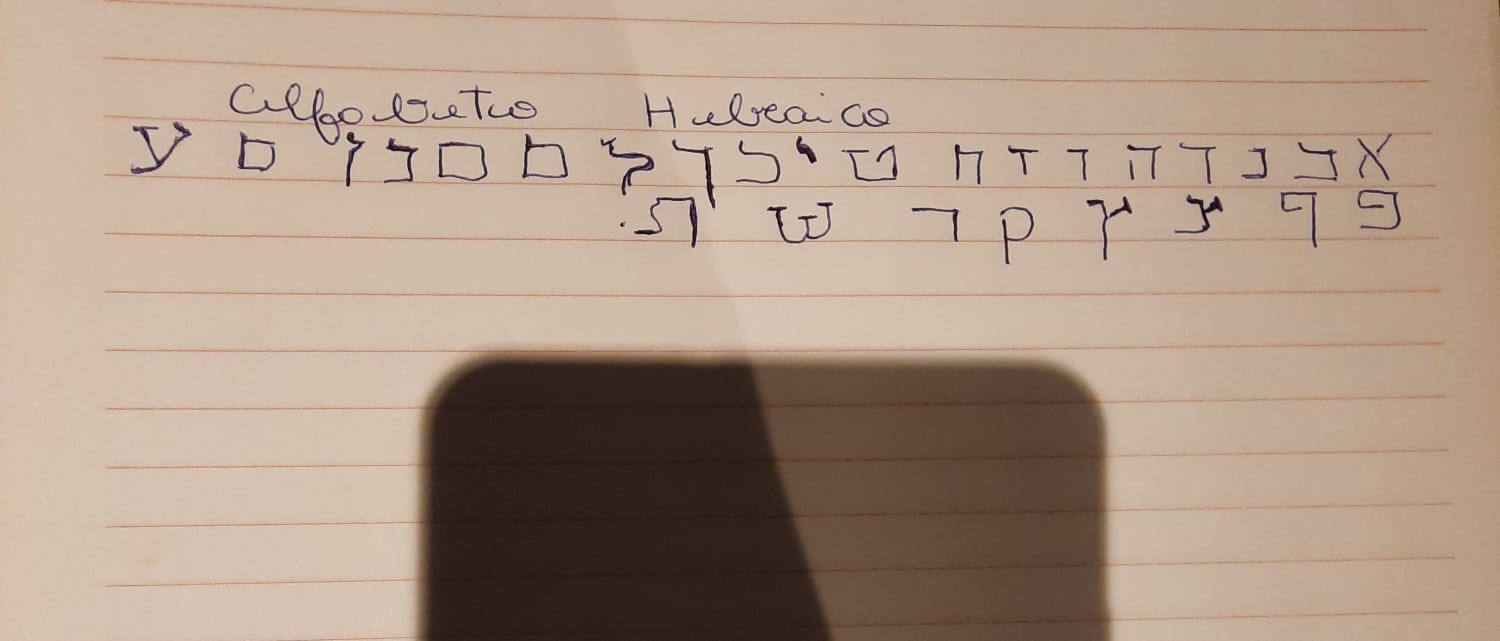 Alfabeto Hebraico
א ב נ ד ה ו ז ח ט י כ ך ל מ ם נ ן ס ע
פ ף צ ץ ק ר ש ת.